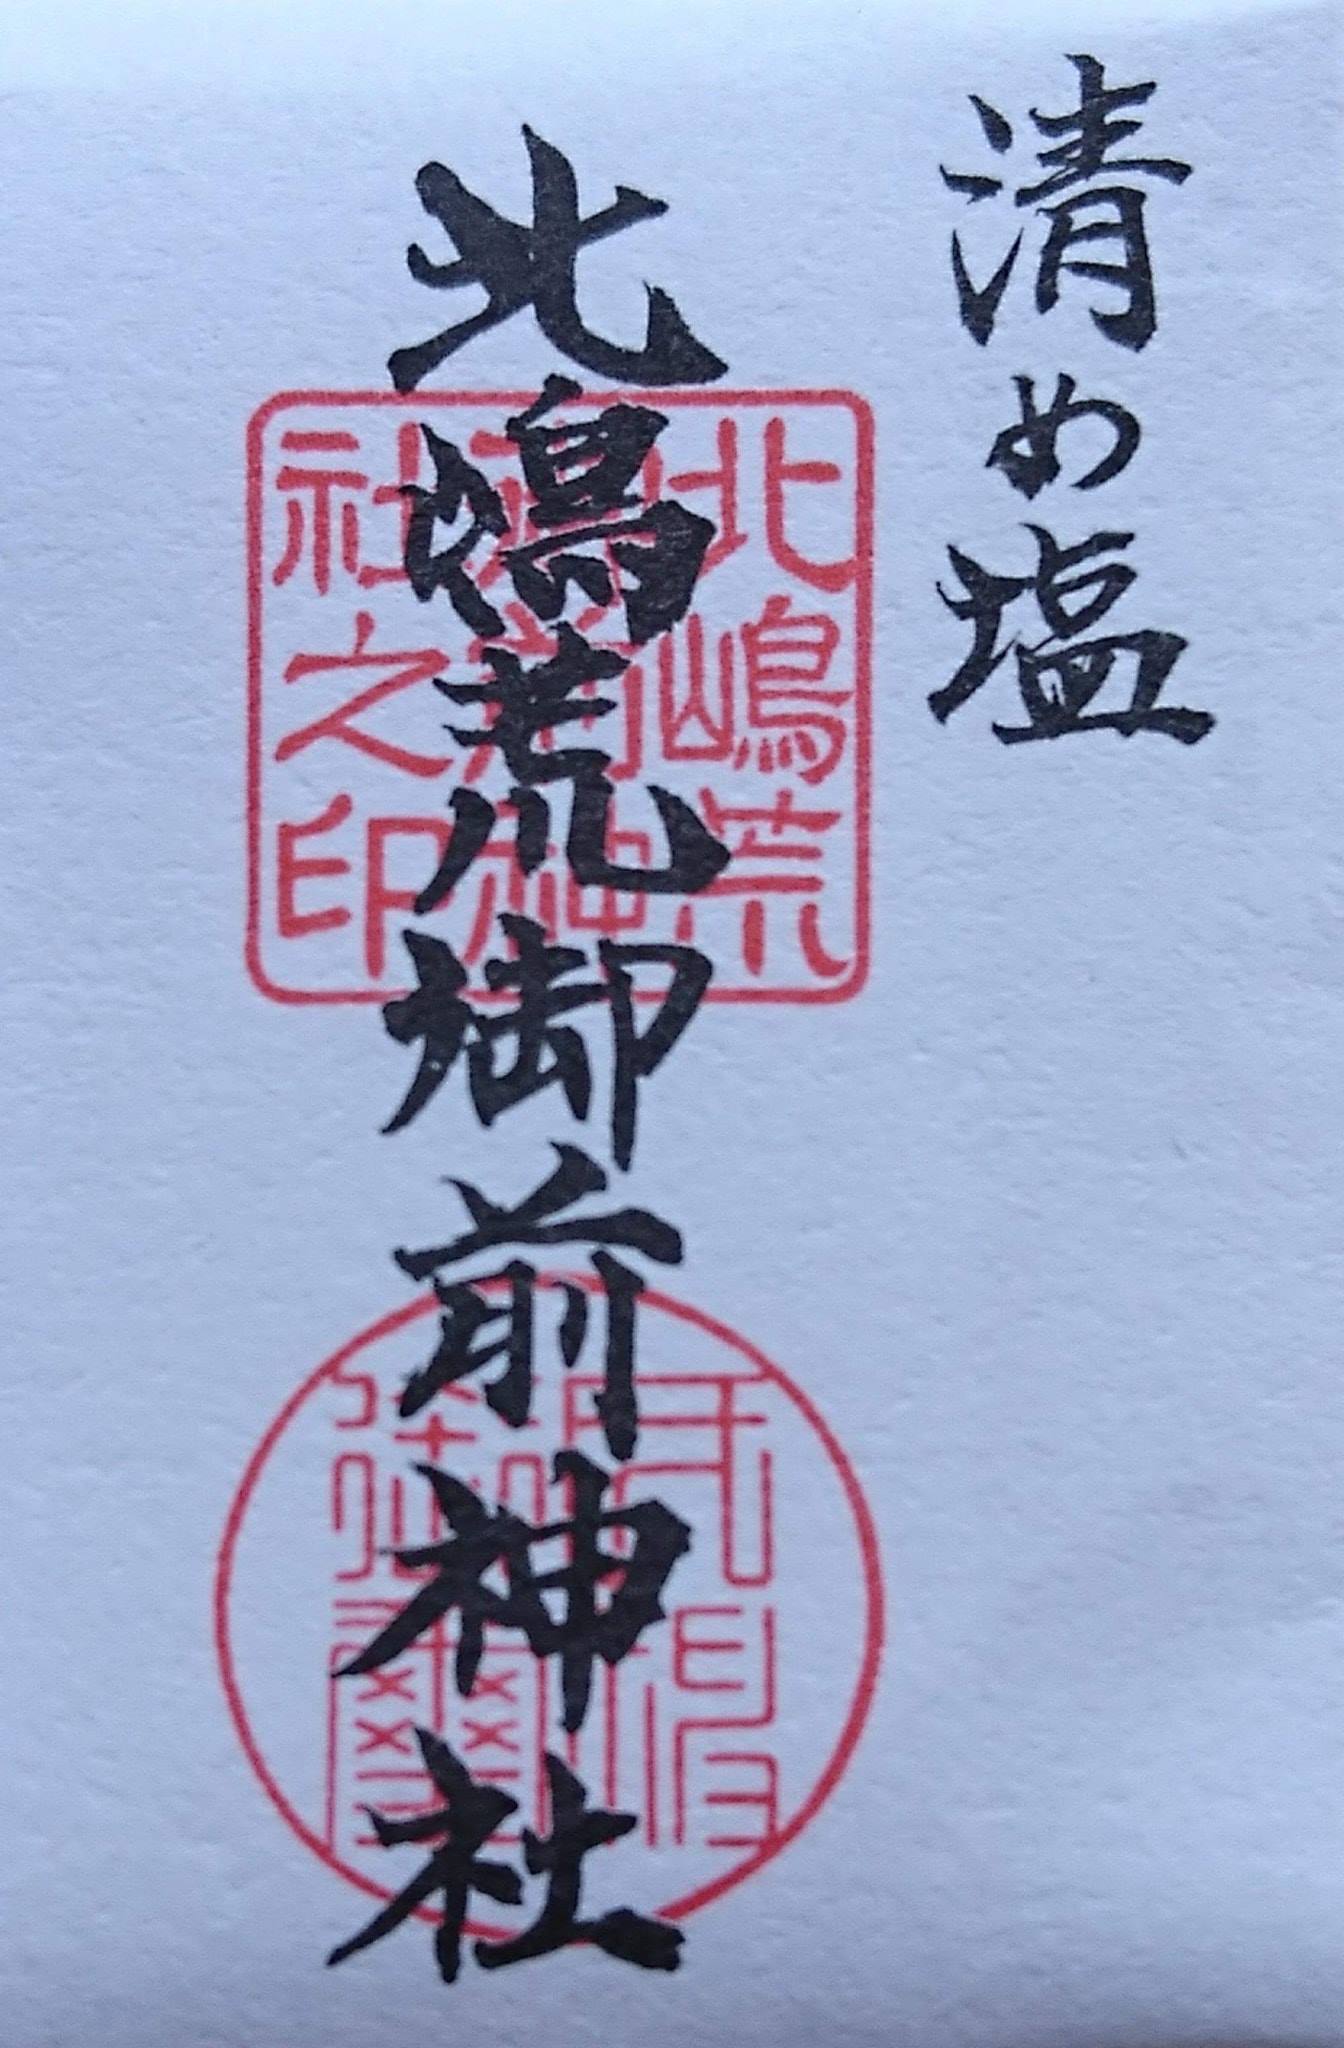 清め塩
北嶋荒御前神社
北嶋荒
御前神
社之印